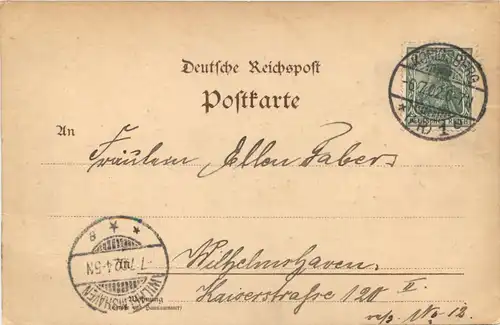 Deutsche Reichspost
Postkarte
An
Fräulein Ellen Fabers
Wilhelmshaven.
Kaiserstraße 120 II.
rep. No. 12.
WILHELMSHAVEN